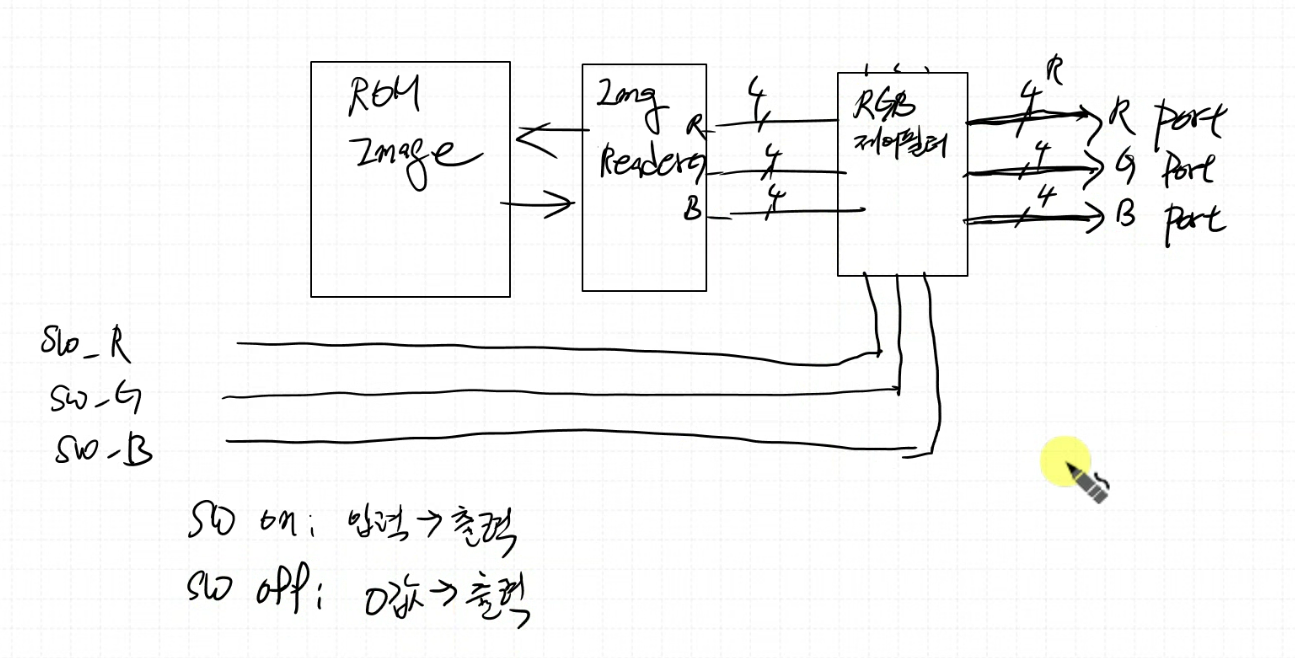 ROM
Image
Img
Reader
R
G
B
4
4
4
RGB
제어필터
R
4
4
4
R port
G port
B port
SW_R
SW_G
SW_B
SW on : 입력 → 출력
SW off : 0값 → 출력